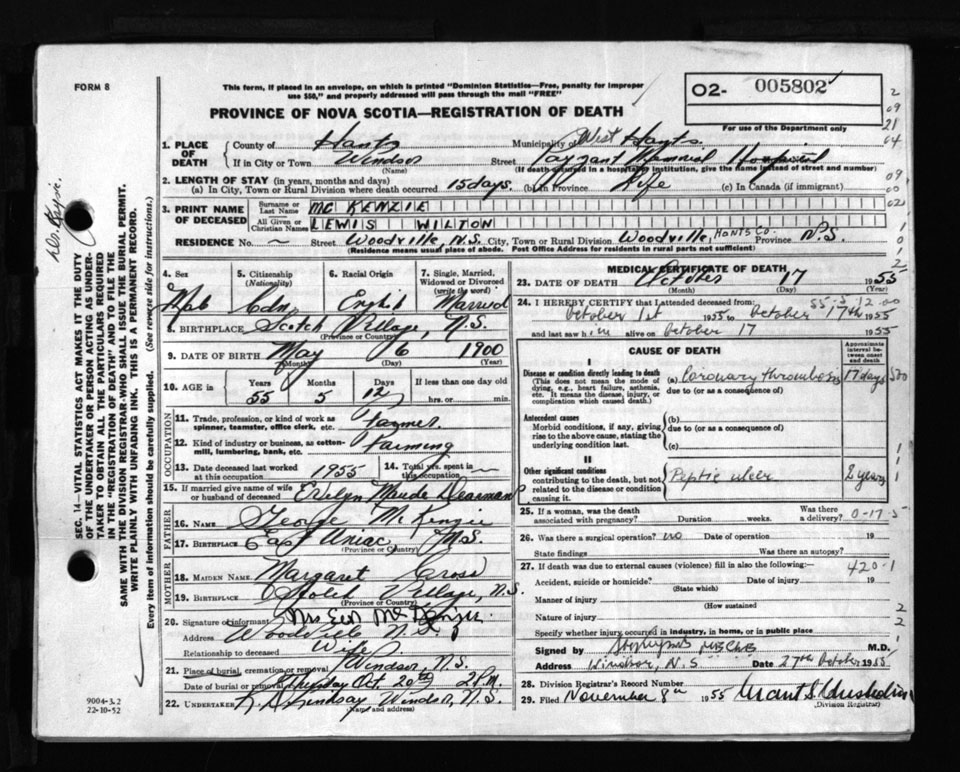 FORM 8
This form, if placed in an envelope, on which is printed "Dominion Statistics—Free, penalty for improper
use $50," and properly addressed will pass through the mail "FREE"
PROVINCE OF NOVA SCOTIA—REGISTRATION OF DEATH
O2- 005802
For use of the Department only
2
09
21
04
09
00
021
SEC. 14—VITAL STATISTICS ACT MAKES IT THE DUTY
OF THE UNDERTAKER OR PERSON ACTING AS UNDER-
TAKER TO OBTAIN ALL THE PARTICULARS REQUIRED
IN THE "REGISTRATION OF DEATH" AND TO FILE THE
SAME WITH THE DIVISION REGISTRAR-WHO SHALL ISSUE THE BURIAL PERMIT.
WRITE PLAINLY WITH UNFADING INK. THIS IS A PERMANENT RECORD.
Every item of information should be carefully supplied. (See reverse side for instructions.)
1. PLACE OF DEATH
County of Hants Municipality of West Hants
If in City or Town Windsor Street Payzant Memorial Hospital
(Name) (If death occurred in a hospital or institution, give the name instead of street and number)
2. LENGTH OF STAY (in years, months and days)
(a) In City, Town or Rural Division where death occurred 15 days. (b) In Province Life (c) In Canada (if immigrant)
3. PRINT NAME OF DECEASED
Surname or Last Name MC KENZIE
All Given or Christian Names LEWIS WILTON
RESIDENCE No. ~ Street Woodville, N.S. City, Town or Rural Division Woodville, HANTS CO. Province N.S.
(Residence means usual place of abode. Post Office Address for residents in rural parts not sufficient)
4. Sex Male
5. Citizenship (Nationality) Cdn
6. Racial Origin English
7. Single, Married, Widowed or Divorced (write the word) Married
8. BIRTHPLACE Scotch Village, N.S.
(Province or Country)
9. DATE OF BIRTH May 6 1900
(Month) (Day) (Year)
10. AGE in Years 55 Months 5 Days 12 If less than one day old hrs. or min.
OCCUPATION
11. Trade, profession, or kind of work as
spinner, teamster, office clerk, etc. Farmer
12. Kind of industry or business, as cotton-
mill, lumbering, bank, etc. Farming
13. Date deceased last worked at this occupation 1955
14. Total yrs. spent in this occupation ~
15. If married give name of wife
or husband of deceased Evelyn Maude Dearman
FATHER
16. NAME George McKenzie
17. BIRTHPLACE East Uniac N.S.
(Province or Country)
MOTHER
18. MAIDEN NAME Margaret Crose
19. BIRTHPLACE Scotch Village, N.S.
(Province or Country)
20. Signature of informant Mrs McKenzie
Address Woodville N.S.
Relationship to deceased Wife
21. Place of burial, cremation or removal Windsor, N.S.
Date of burial or removal Thursday Oct. 20th 2 P.M.
22. UNDERTAKER Lindsay Windsor, N.S.
(Name and address)
9004-3.2
22-10-52
MEDICAL CERTIFICATE OF DEATH
23. DATE OF DEATH October 17 1955
(Month) (Day)
24. I HEREBY CERTIFY that I attended deceased from
October 1st 1955 to October 17th 1955
and last saw him alive on October 17 1955
CAUSE OF DEATH
Approximate interval between onset and death
I
Disease or condition directly leading to death
(This does not mean the mode of
dying, e.g., heart failure, asthenia,
etc. It means the disease, injury, or
complication which caused death.)
(a) Coronary thrombosis 17 days
due to (or as a consequence of)
Antecedent causes
Morbid conditions, if any, giving
rise to the above cause, stating the
underlying condition last.
(b)
due to (or as a consequence of)
(c)
II
Other significant conditions
contributing to the death, but not
related to the disease or condition
causing it.
Peptic ulcer 2 years
25. If a woman, was the death
associated with pregnancy? Duration weeks. Was there a delivery? 0-17-5
26. Was there a surgical operation? no Date of operation 19
State findings Was there an autopsy?
27. If death was due to external causes (violence) fill in also the following: 420-1
Accident, suicide or homicide? Date of injury 19
(State which)
Manner of injury
(How sustained)
Nature of injury
Specify whether injury occurred in industry, in home, or in public place
Signed by M.D.
Address Windsor, N.S. Date 27th October 1955
28. Division Registrar's Record Number
29. Filed November 8th 1955 Chisholm
(Division Registrar)